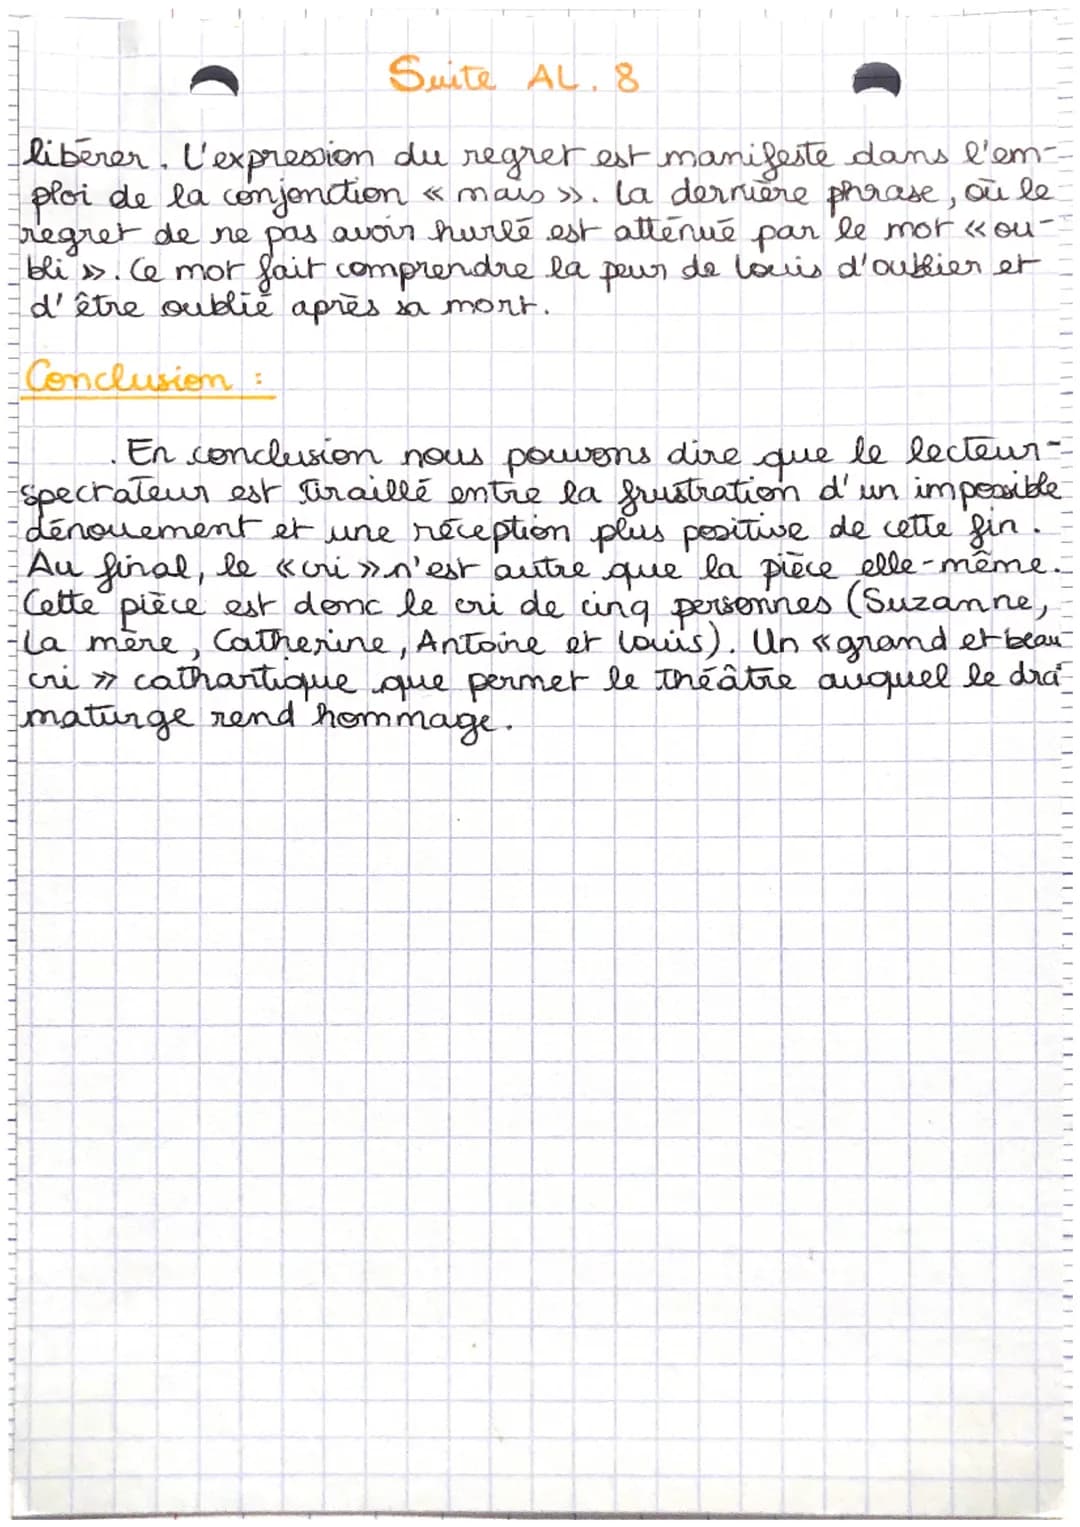 Suite AL. 8
libérer. L'expression du regret est manifeste dans l'em-
ploi de la conjonction « mais ». La dernière phrase, où le
regret de ne pas avoir hurlé est atténué par le mot « ou-
bli ». Ce mot fait comprendre la peur de Louis d'oublier et
d'être oublié après sa mort.
Conclusion :
. En conclusion nous pouvons dire que le lecteur-
spectateur est tiraillé entre la frustration d'un impossible
dénouement et une réception plus positive de cette fin.
Au final, le « cri » n'est autre que la pièce elle-même.
Cette pièce est donc le cri de cinq personnes (Suzanne,
La mère, Catherine, Antoine et Louis). Un « grand et beau
cri » cathartique que permet le théâtre auquel le dra-
maturge rend hommage.